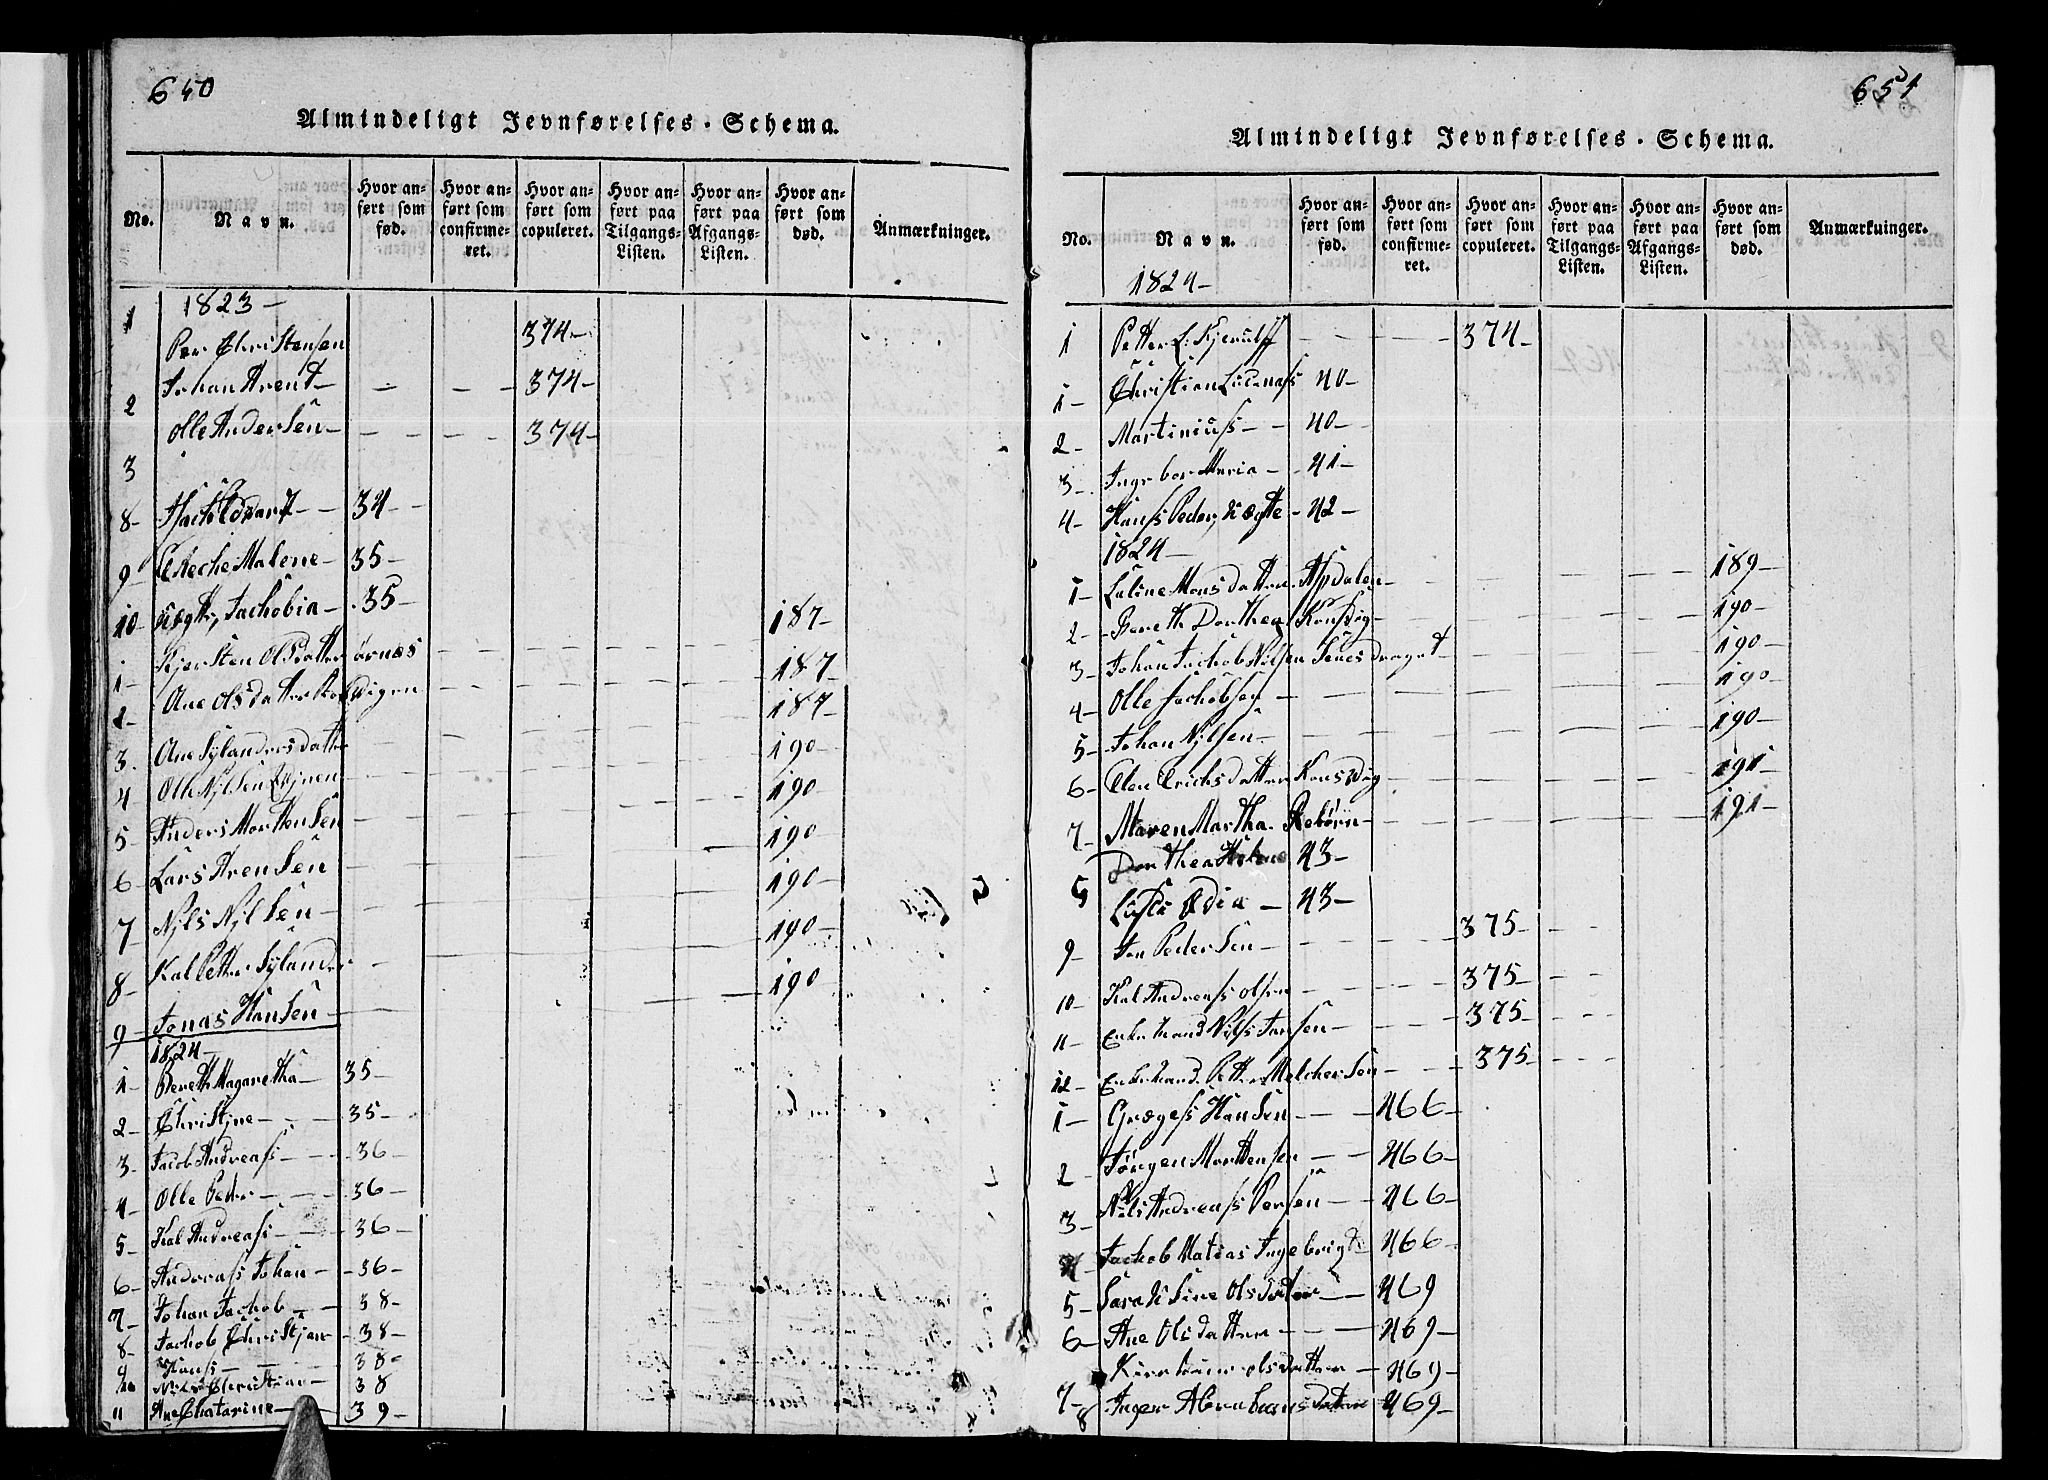 650
Almindeligt Jevnførelses-Schema.
No. Navn. Hvor anført som fød. Hvor anført som confirmeret. Hvor anført som copuleret. Hvor anført paa Tilgangs-Listen. Hvor anført paa Afgangs-Listen. Hvor anført som død. Anmærkninger.
1823
1 Peer Christensen 374
2 Johan Arent 374
3 Olle Andersen 374
8 34
9 Malene 35
10 Jachobia 35
1 Kjersten Olsdatter 187
2 Ane Olsdatter 187
3 Ane Sylandersdatter 187
4 Olle Nilsen 190
5 Anders Mortensen 190
6 Lars Arensen 190
7 Nils Nilsen 190
8 Kal Petter Sylander 190
9 Jonas Hansen 190
1824
1 Bereth Magaretha 35
2 Christine 35
3 Jacob Andreas 36
4 Olle Peder 36
5 Kal Andreas 36
6 Andreas Johan 36
7 Johan Jachob 38
8 Jachob Christjan 38
9 Hans 38
10 Nils Christian 38
11 Ane Chatarine 39
651
Almindeligt Jevnførelses-Schema.
No. Navn. Hvor anført som fød. Hvor anført som confirmeret. Hvor anført som copuleret. Hvor anført paa Tilgangs-Listen. Hvor anført paa Afgangs-Listen. Hvor anført som død. Anmærkninger.
1824
1 Petter L: Kjerulff 374
1 Christian 40
2 Martinius 40
3 Ingebor Maria 41
4 Hans Peder, Uægte 42
1824
1 Monsdatter 189
2 Bereth Dorthea 190
3 Johan Jachob Nilsen 190
4 Olle Jachobsen 190
5 Johan Nilsen 190
6 Elen Erichsdatter 191
7 Maren Martha 191
5 Dorthea 43
43
9 Jon Pedersen 375
10 Kal Andreas Olsen 375
11 Enkemand Nils Jansen 375
12 Enkemand Petter Melchersen 375
1 Græges Hansen 466
2 Jørgen Mortensen 466
3 Nils Andreas Persen 466
4 Jachob Matias Ingebrigt 466
5 Olsdatter 469
6 Ane Olsdatter 469
7 Olsdatter 469
8 Inger Abrahamsdatter 469